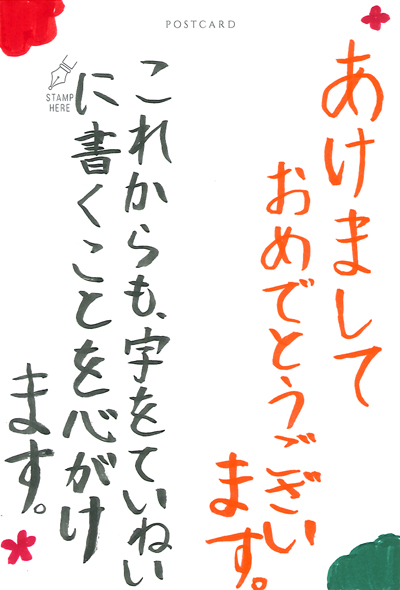 POSTCARD
STAMP
HERE
あけまして
おめでとうござい
ます。
これからも、字をていねい
に書くことを心がけ
ます。